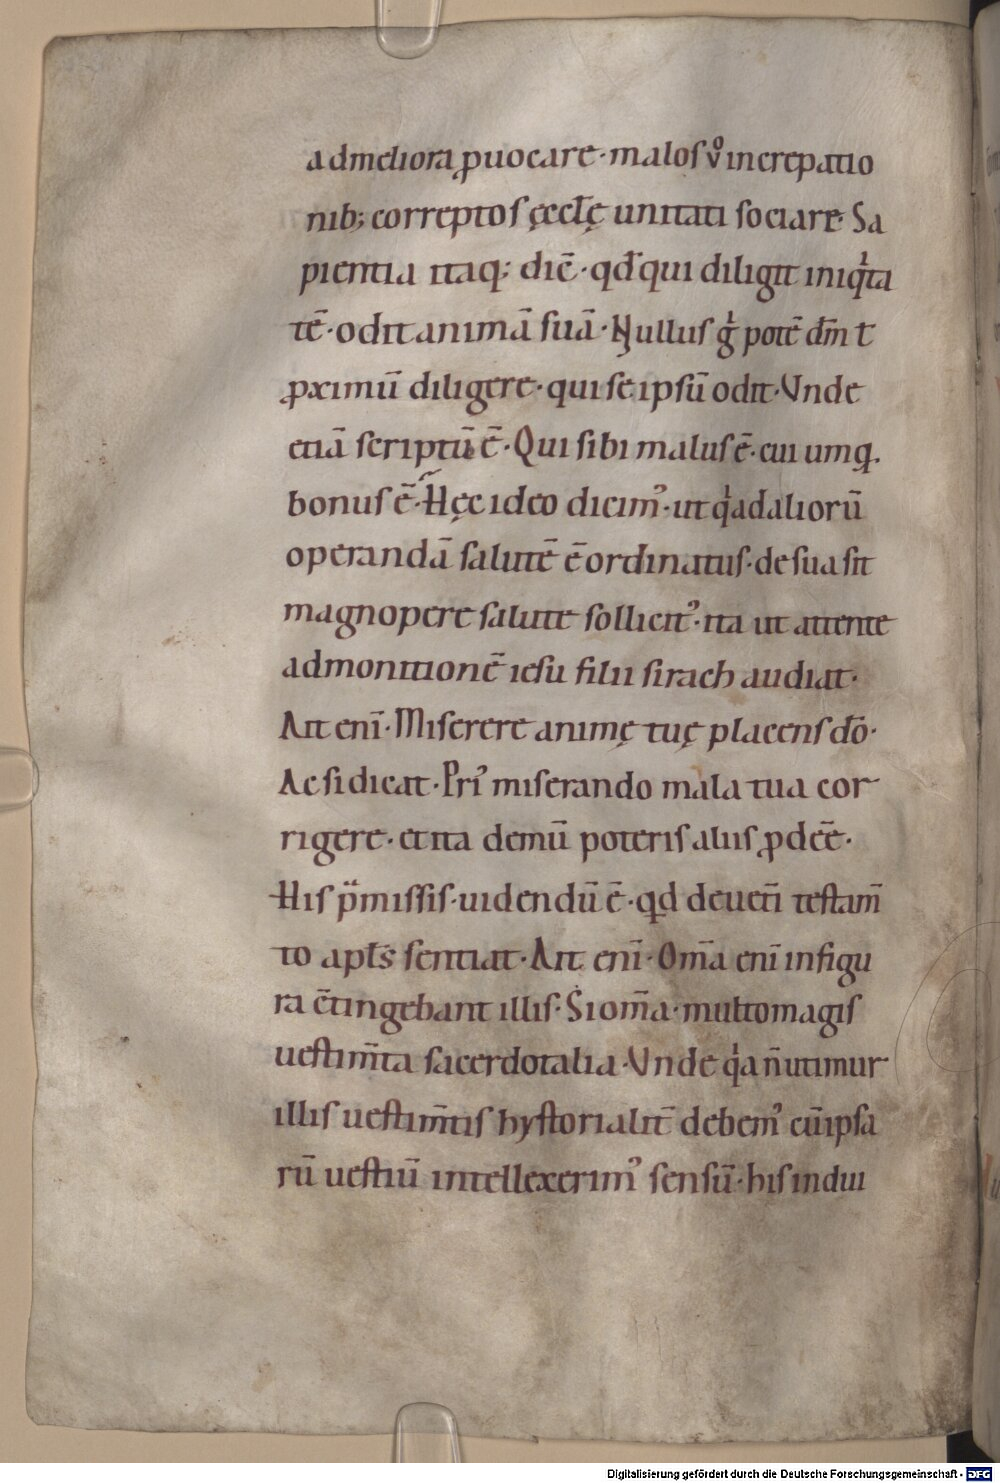 ad meliora ꝓuocare · malos v̊ increpatio
nib; correptos ęccłę unitati sociare · Sa
pientia itaq; dic̄ · qđ qui diligit iniqͥta
tē · odit animā suā · Nullus gͥ potē dm̄ ł
ꝓximū diligere · qui se ipsū odit · Vnde
etiā scriptū ē · Qui sibi malus ē · cui umq̨
bonus ē · Hęc ideo dicimꝰ · ut qͥ ad aliorū
operandā salutē ē ordinatus · de sua sit
magnopere salute sollicitꝰ · ita ut attente
admonitionē iesu filii sirach audiat ·
Ait enī · Miserere animę tuę placens dō ·
Ac si dicat · Priꝰ miserando mala tua cor
rigere · et ita demū poteris aliis ꝓdēē ·
His p̈missis · uidendū ē · qd de uet̄i testam̄
to apłs sentiat · Ait enī · Om̄a enī in figu
ra c̄tingebant illis · Si om̄a · multo magis
uestim̄ta sacerdotalia · Vnde qͥa n̄ utimur
illis uestim̄tis hystorialit̄ debemꝰ cū ipsa
rū uestiū intellexerimꝰ sensū · his indui
Digitalisierung gefördert durch die Deutsche Forschungsgemeinschaft - DFG